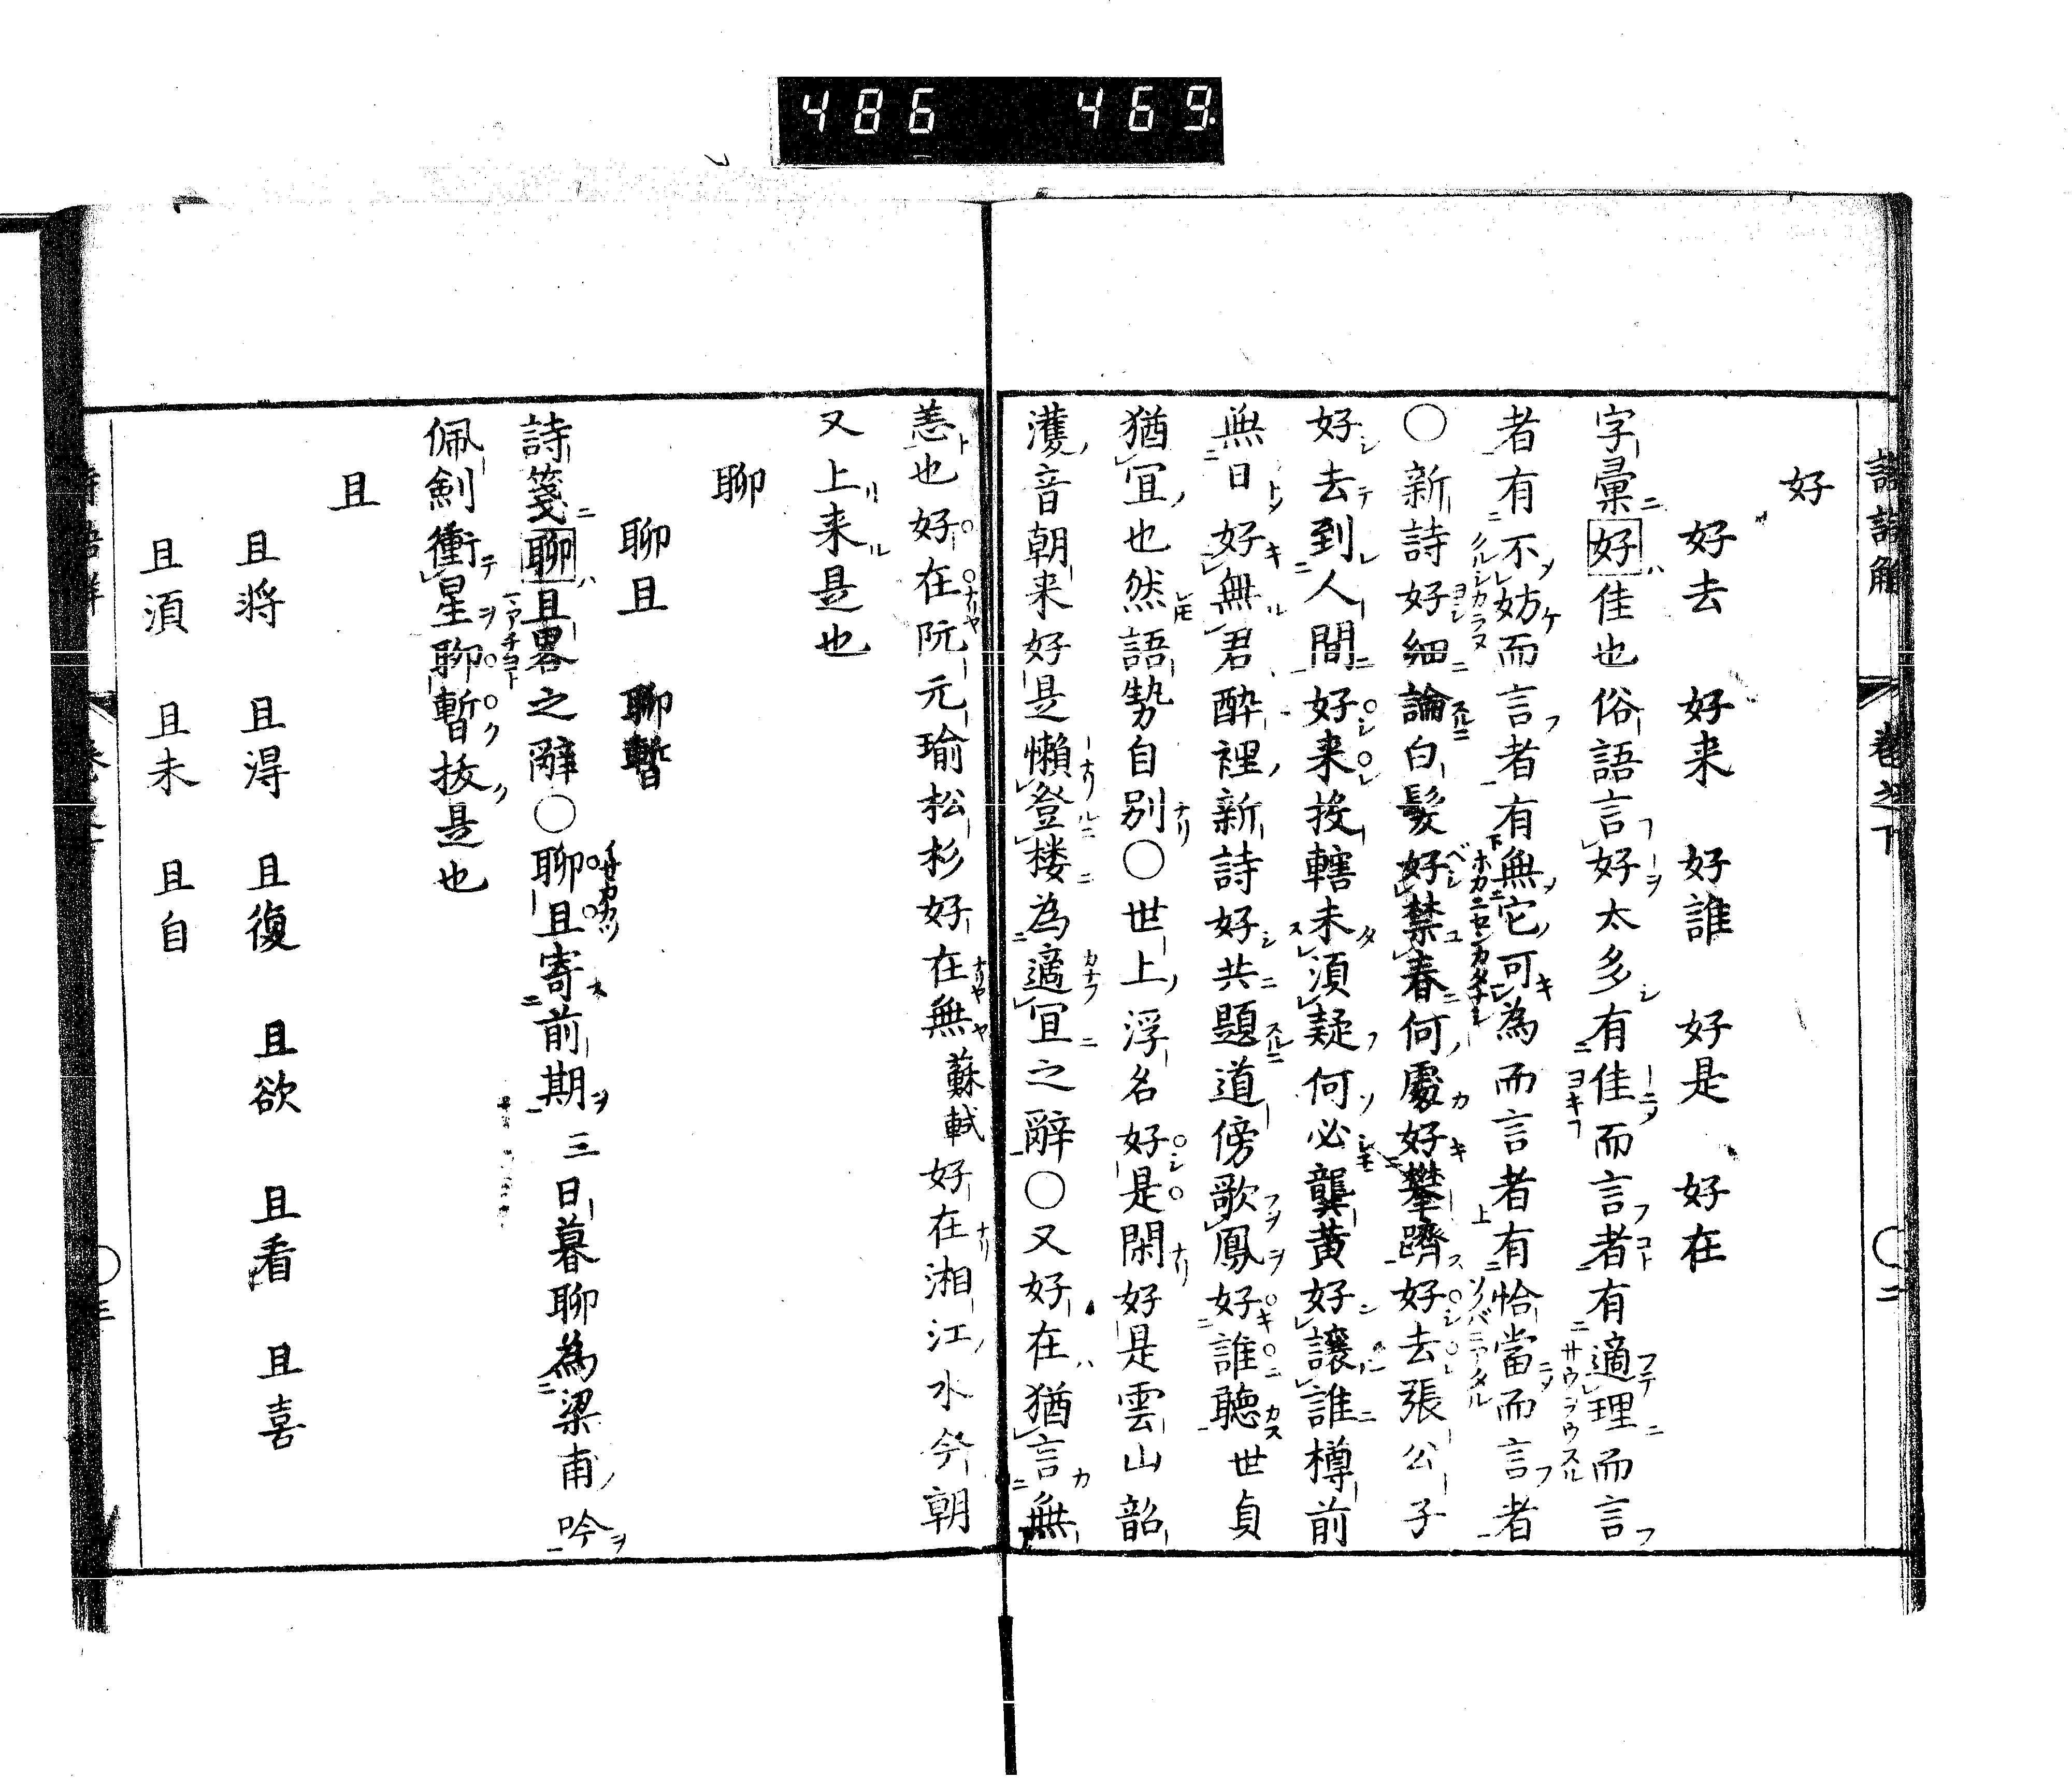 486 469.
詩語解 卷之下 〇二
好
好去 好来 好誰 好是 好在
字彙好佳也俗語言好太多有佳而言者有適理而言
者有不妨而言者有無它可為而言者有恰當而言者
〇新詩好細論白髮好禁春何處好攀躋好去張公子
好去到人間好来投轄未須疑何必龔黃好讓誰樽前
無日好無君酔裡新詩好共題道傍歌鳳好誰聴世貞
猶冝也然語勢自別〇世上浮名好是閑好是雲山韶
濩音朝来好是懶登楼為適冝之辭〇又好在猶言無
恙也好在阮元瑜松杉好在無蘇軾好在湘江水今朝
又上来是也
聊
聊且 聊暫
詩箋聊且畧之辭〇聊且寄前期三日暮聊為梁甫吟
佩劍衝星聊暫抜是也
且
且將 且淂 且復 且欲 且看 且喜
且須 且未 且自